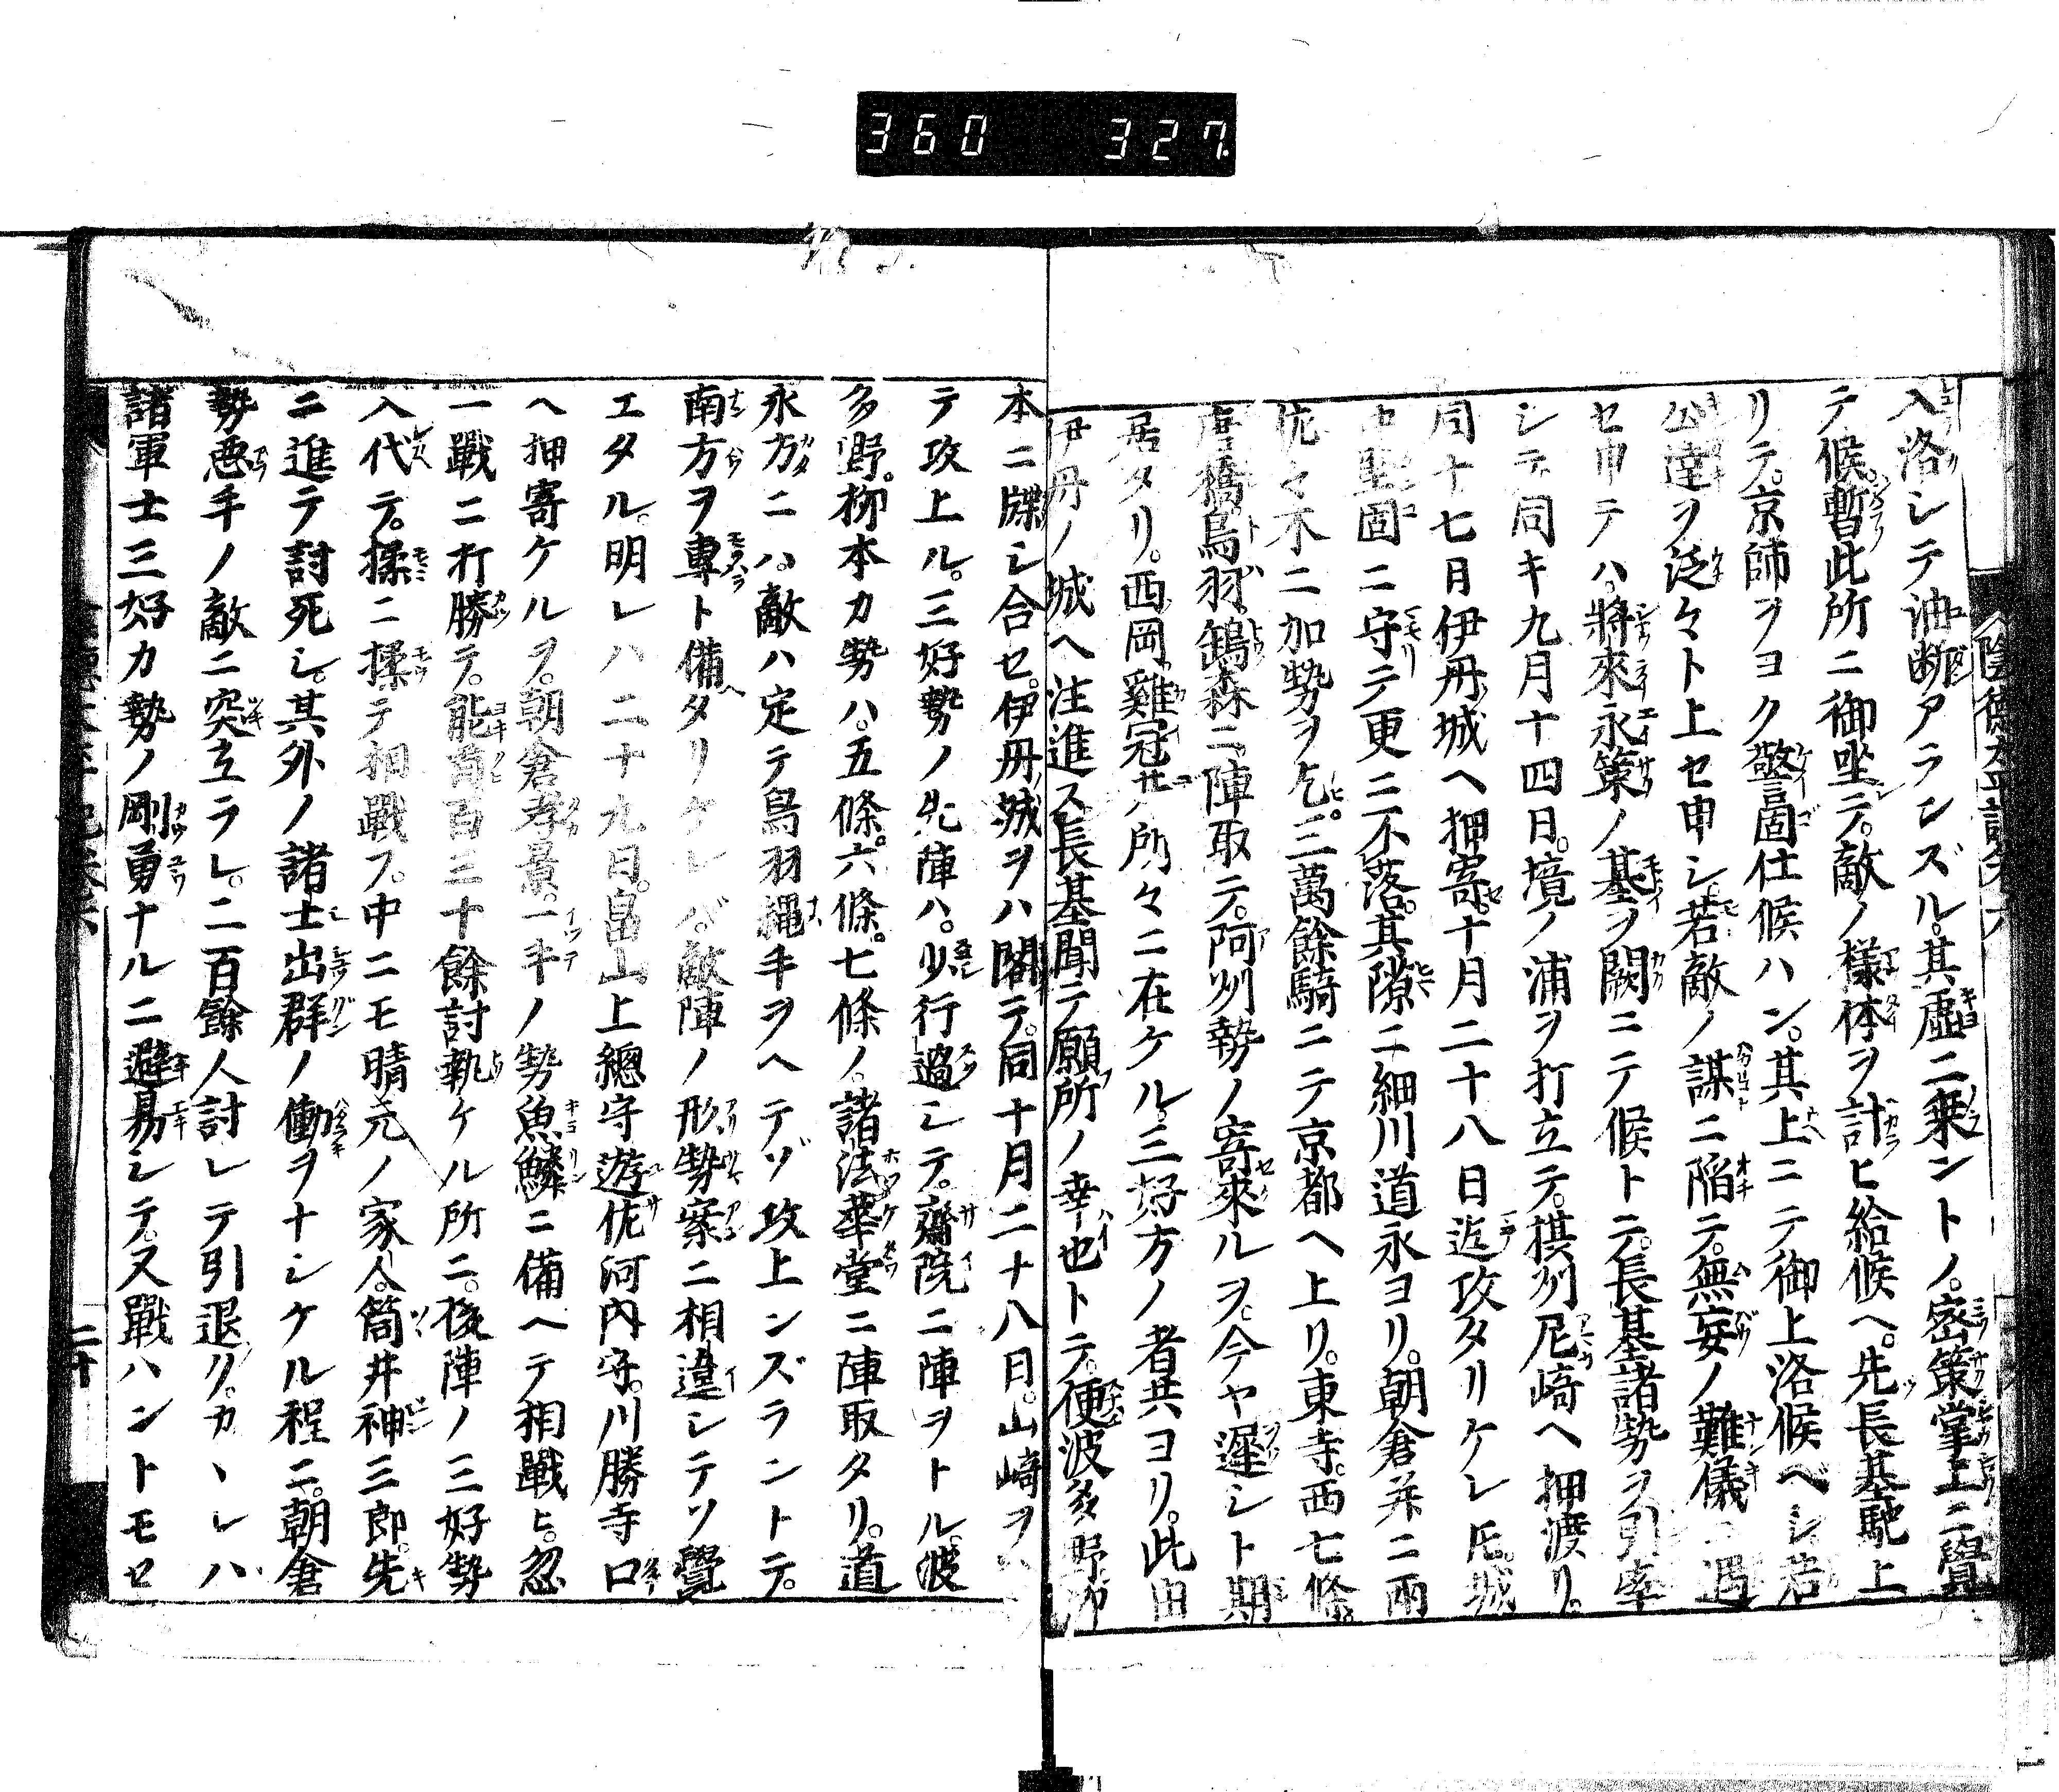 360 327
陰德太平記卷六
入洛シテ油断アランズル。其虛ニ乘ントノ。密策掌上ニ覺
テ候。暫此所ニ御坐テ。敵ノ樣体ヲ計ヒ給候ヘ。先長基馳上
リテ。京師ヲヨク警固仕候ハン。其上ニテ御上洛候ベシ若
公達ヲ泛々ト上セ申シ若敵ノ謀ニ陷テ。無妄ノ難儀ニ遇
セ申テハ。將來永策ノ基ヲ闕ニテ候トテ。長基諸勢ヲ引率
シテ同キ九月十四日。境ノ浦ヲ打立テ。摂州尼崎ヘ押渡リ。
同十七日伊丹城ヘ押寄セ。十月二十八日迄攻タリケレ𪜈。城
中堅固ニ守テ更ニ不落。其隙ニ細川道永ヨリ。朝倉并ニ兩
佐々木ニ加勢ヲ乞。三萬餘騎ニテ京都ヘ上リ。東寺。西七條。
唐橋鳥羽。鷂森ニ陣取テ。阿州勢ノ寄來ルヲ。今ヤ遲シト期
居タリ。西岡雞冠井所々ニ在ケル三好方ノ者共ヨリ。此由
伊丹ノ城ヘ注進ス長基聞テ願所ノ幸也トテ。便波多野柳
本ニ牒シ合セ。伊丹城ヲハ閣テ。同十月二十八日。山崎ヲヘ
テ攻上ル。三好勢ノ先陣ハ。少行過シテ。齋院ニ陣ヲトル。波
多野。柳本カ勢ハ。五條。六條。七條ノ。諸法華堂ニ陣取タリ。道
永方ニハ。敵ハ定テ鳥羽繩手ヲヘテゾ攻上ンズラントテ。
南方ヲ專ト備タリケレバ。敵陣ノ形勢案ニ相違シテソ覺
エタル。明レハ二十九日。畠山上總守遊佐河内守。川勝寺口
ヘ押寄ケルヲ。朝倉孝景。一手ノ勢魚鱗ニ備ヘテ相戰ヒ。忽
一戰ニ打勝テ。能首百三十餘討執ケル所ニ。後陣ノ三好勢
入代テ。揉ニ揉テ相戰フ。中ニモ晴元ノ家人。筒井神三郎。先
ニ進テ討死シ。其外ノ諸士出群ノ働ヲナシケル程ニ。朝倉
勢惡手ノ敵ニ突立ラレ。二百餘人討レテ引退リ。カヽレハ
諸軍士三好カ勢ノ剛勇ナルニ避易シテ。又戰ハントモセ
二十